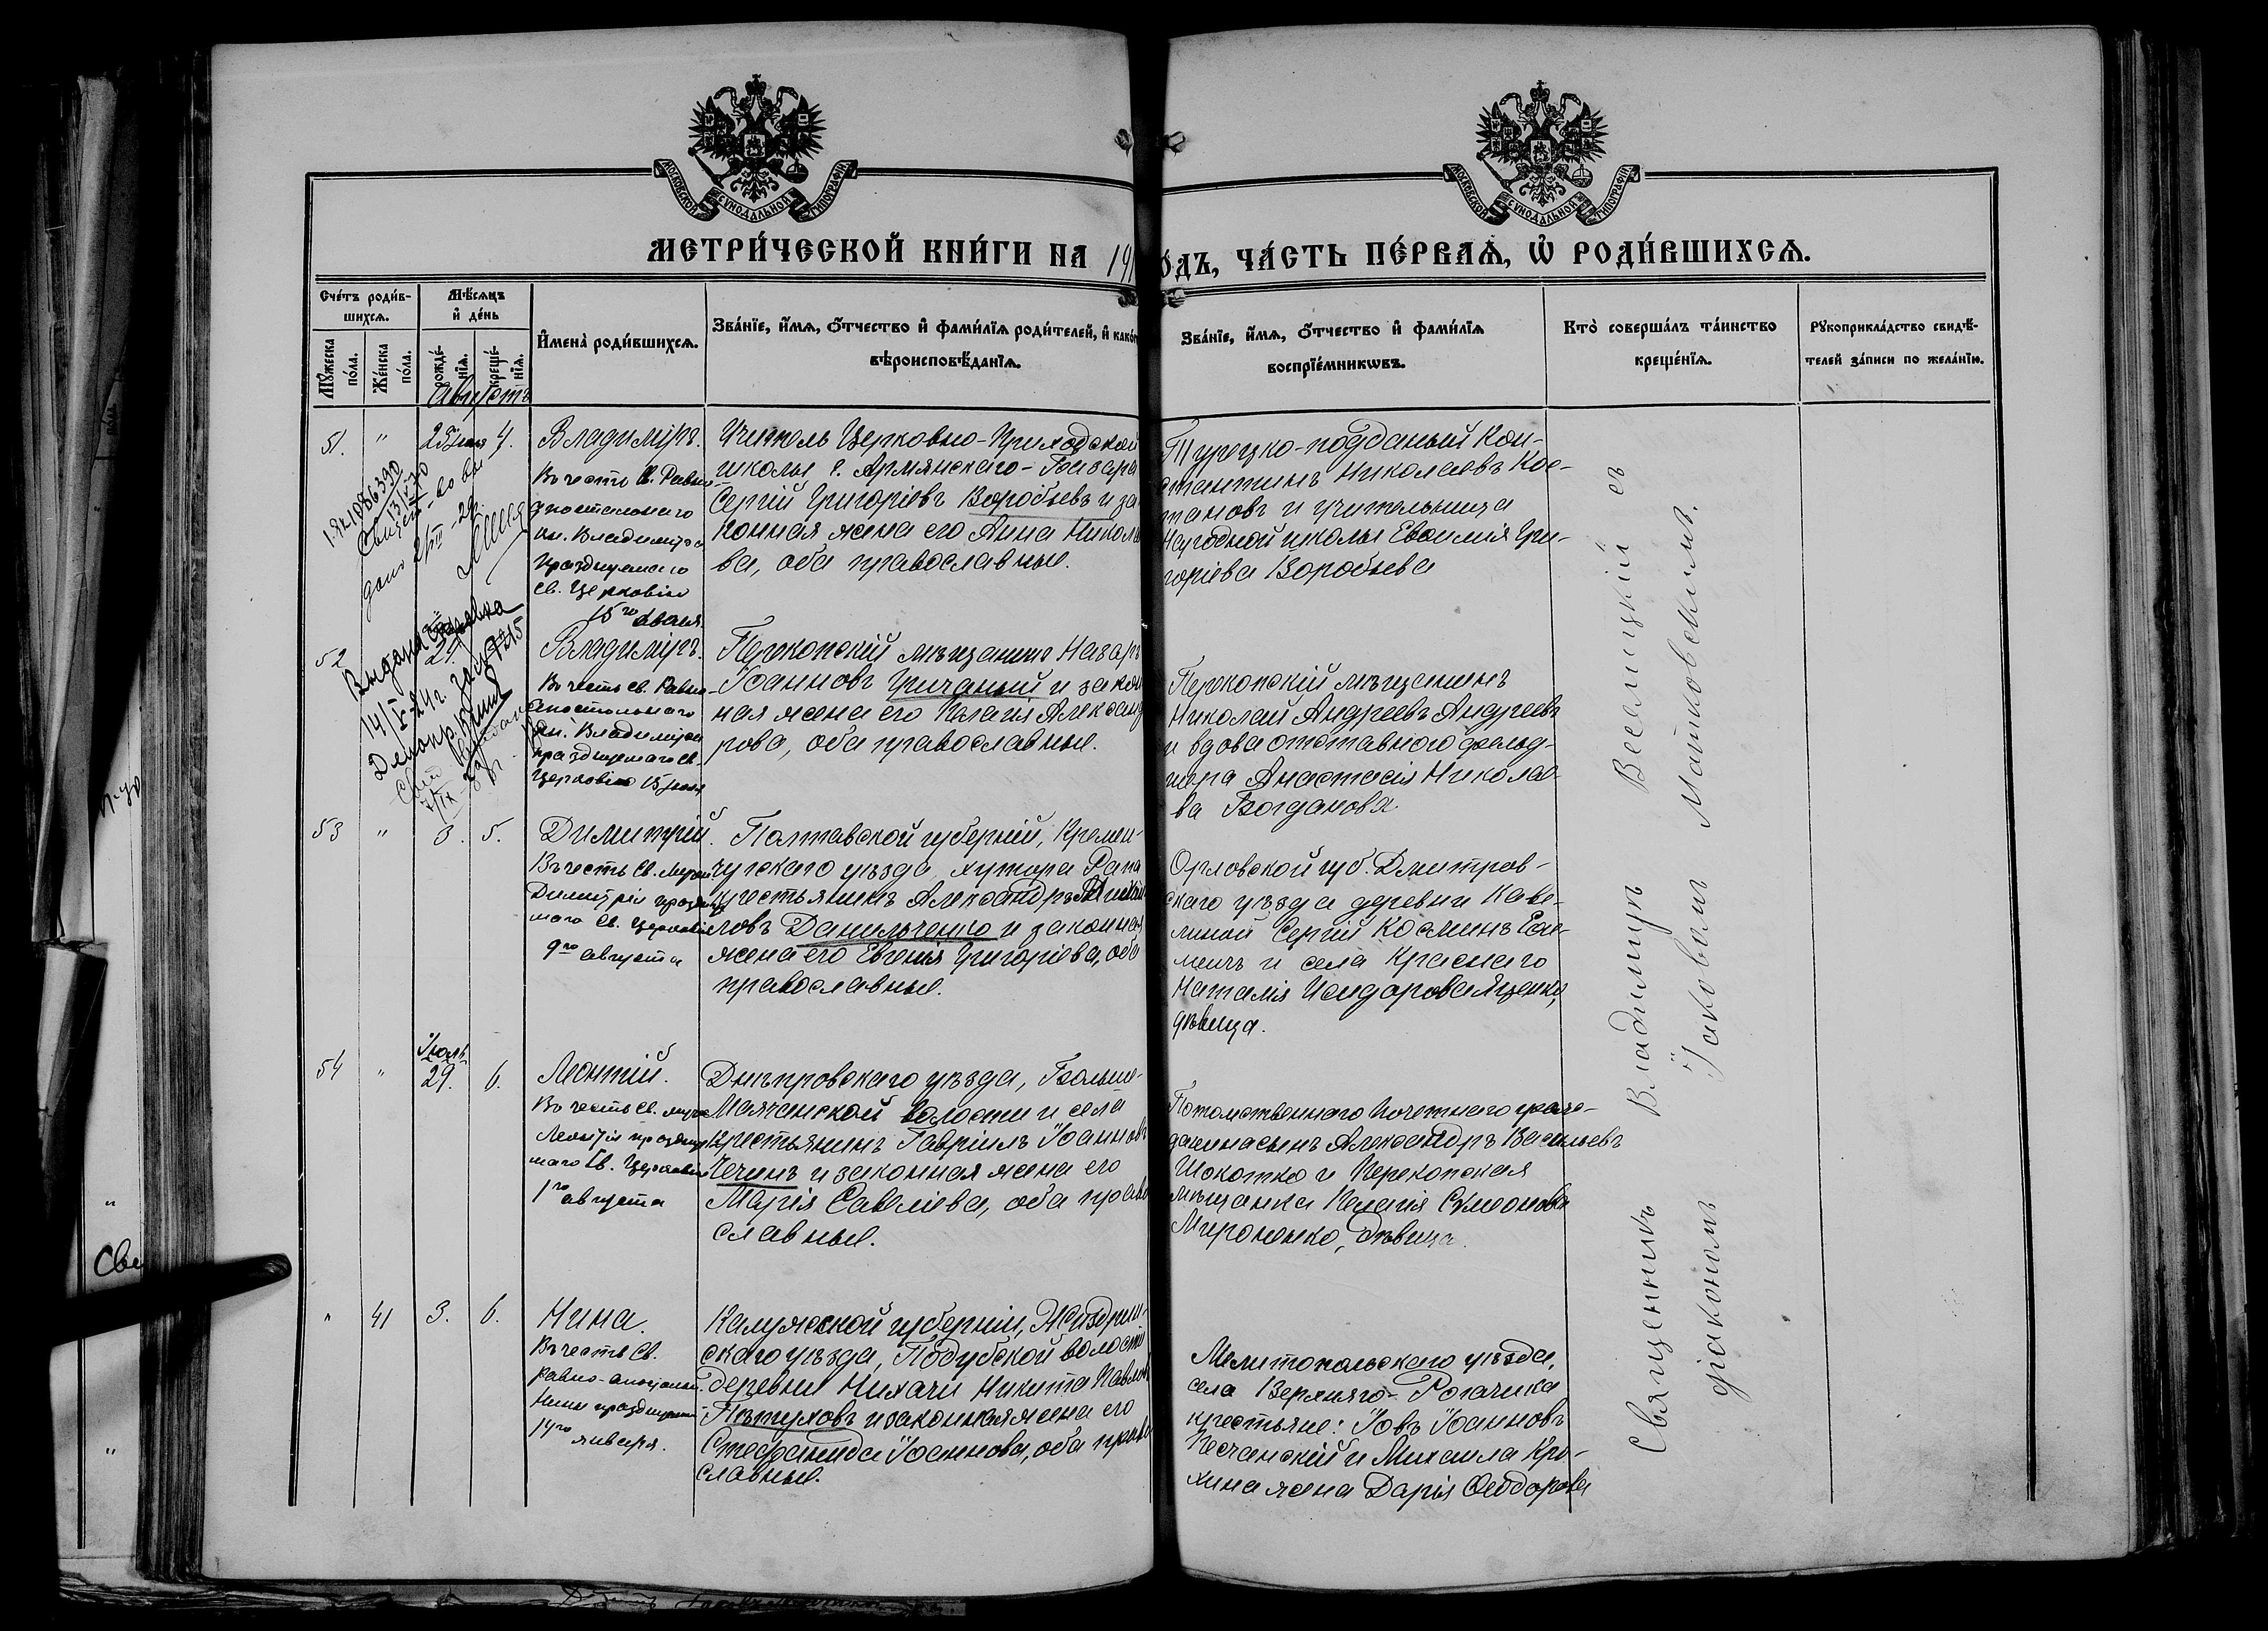 МОСКОВСКОЙ СѴНОДАЛЬНОЙ ТИПОГРАФІИ
МОСКОВСКОЙ СѴНОДАЛЬНОЙ ТИПОГРАФІИ
МЕТРИ́ЧЕСКОЙ КНИ́ГИ НА 191
О́ДЪ, ЧА́СТЬ ПЕ́РВАѦ, Ѡ҆ РОДИ́ВШИХСѦ.
Сче́тъ роди́в-
шихсѧ.
Мꙋ́жеска
по́ла.
Же́нска
по́ла.
Мѣ́сѧцъ
и҆ де́нь
рожде́-
нїѧ.
креще́-
нїѧ.
И҆мена̀ роди́вшихсѧ.
Зва́нїе, и҆́мѧ, ѻ҆́тчество и҆ фами́лїѧ роди́телей, и҆ како́г
вѣроисповѣ́данїѧ.
Зва́нїе, и҆́мѧ, ѻ҆́тчество и҆ фами́лїѧ
воспрїе́мникѡвъ.
Кто̀ соверша́лъ та́инство
креще́нїѧ.
Рꙋкоприкла́дство свидѣ́-
телей за́писи по жела́нїю.
Августъ
51. " 4.
Владиміръ.
Въ честь Св. Равно-
апостольнаго
кн. Владиміра
празднуемаго
св. Церковію
15го Іюля.
Учитель Церковно-Приходской
школы г. Армянскаго-Базара
Сергій Григоріевъ Воробьевъ и за-
конная жена его Анна Никола
ва, оба православные.
Турецко-подданый Кон-
стантинъ Николаевъ Кос-
тановъ и учительница
Народной школы Евѳимія Гри-
горіева Воробьева
52
Выдана
Владиміръ.
Въ честь Св. Равно-
апостольнаго
кн. Владиміра
празднуемаго Св.
Церковію 15 Іюля
Перекопскій мѣщанинъ Назаръ
Іоанновъ Гричаный и закон
ная жена его Пелагія Александ
рова, оба православные.
Перекопскій мѣщанинъ
Николай Андреевъ Андреевъ
и вдова отставного фельд-
шера Анастасія Николае-
ва Богданова
53 " 3. 5.
Димитрій.
Въ честь Св. Мучен
Димитрія праздну
маго Св. Церковію
9го августа
Полтавской губерніи, Кремен-
чугскаго уѣзда, хутора
крестьянинъ Александръ Михаи
ловъ Данильченко и законная
жена его Евгенія Григоріева, оба
православные.
Орловской губ. Дмитров-
скаго уѣзда деревни Каве-
линой Сергій Косминъ
и села Краснаго
Наталія Исидорова Яценко,
дѣвица.
54 " Іюль 29. 6.
Леонтій.
Въ честь Св. муче
Леонтія праздну
маго Св. Церковію
1го августа
Днѣпровскаго уѣзда, Больше-
Маячанской волости и села
крестьянинъ Гавріилъ Іоанновъ
Чечинъ и законная жена его
Марія Савеліева, оба право
славные.
Потомственнаго почетнаго граж-
данина сынъ Александръ Васильевъ
Шокотко и Перекопская
мѣщанка Пелагія Сѵмеонова
Мироненко, дѣвица.
" 41 3. 6.
Нина.
Въ честь Св.
Равно-апостольн.
Нины празднуемой
14го января.
Калужской губерніи, Жиздрин-
скаго уѣзда, Подубской волости
деревни Нихачи Никита Павлов
Пѣтуховъ и законная жена его
Стефанида Іоаннова, оба право
славные.
Мелитопольскаго уѣзда,
села Верхняго-Рогачика
крестьяне: Іовъ Іоанновъ
Песчанскій и Михаила Кро-
хина жена Дарія Ѳеодорова
Священникъ Владиміръ Веселицкій съ
діакономъ Іаковомъ Матковскимъ.